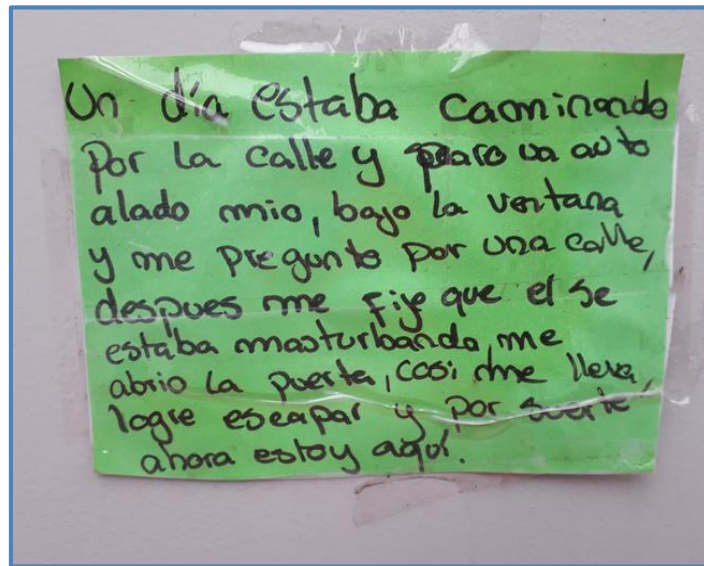 Un día estaba caminando
por la calle y paro un auto
alado mio, bajo la ventana
y me pregunto por una calle,
despues me fije que el se
estaba masturbando, me
abrio la puerta, casi me lleva,
logre escapar y por suerte
ahora estoy aquí.